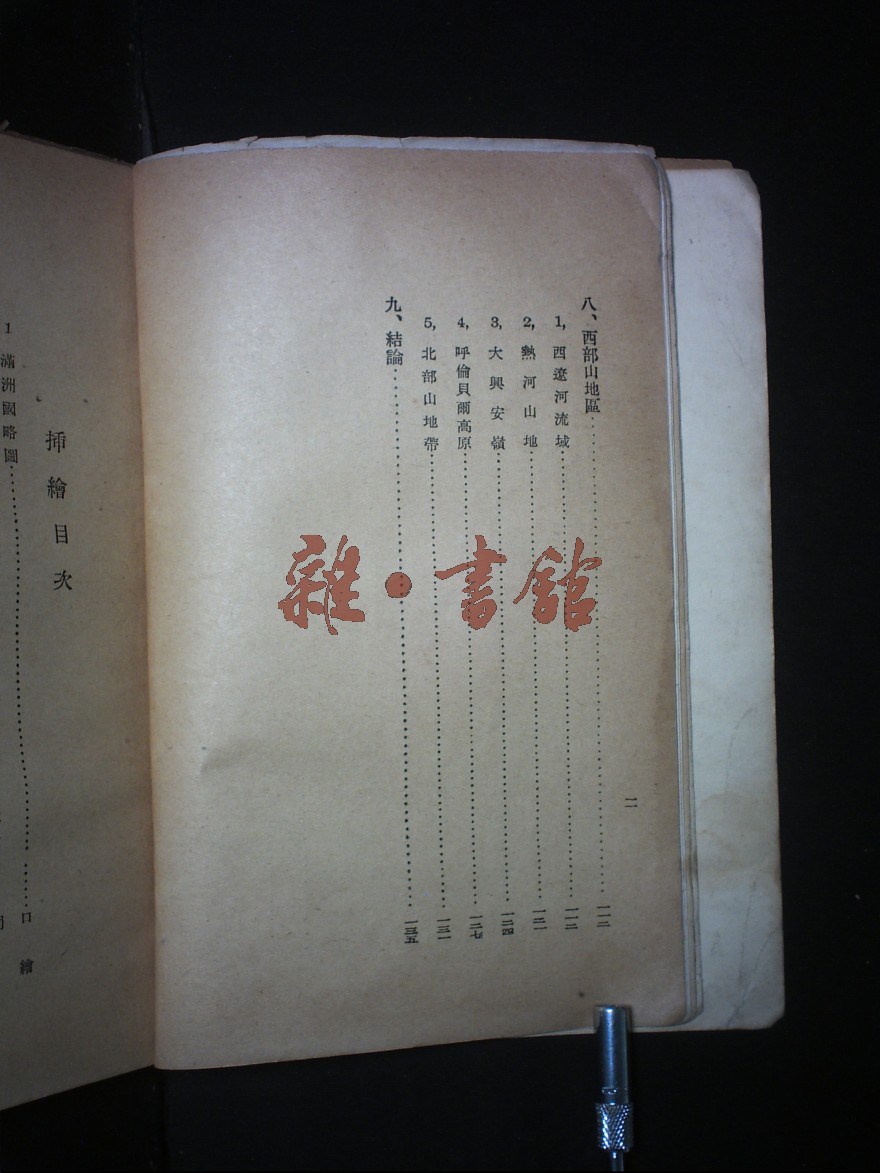 八、西部山地區……一一二
1, 西遼河流域……一一二
2, 熱河山地……一二一
3, 大興安嶺……一二四
4, 呼倫貝爾高原……一二七
5, 北部山地帶……一三一
九、結論……一三五
二
插繪目次
1 滿洲國略圖……口繪
雜·書館